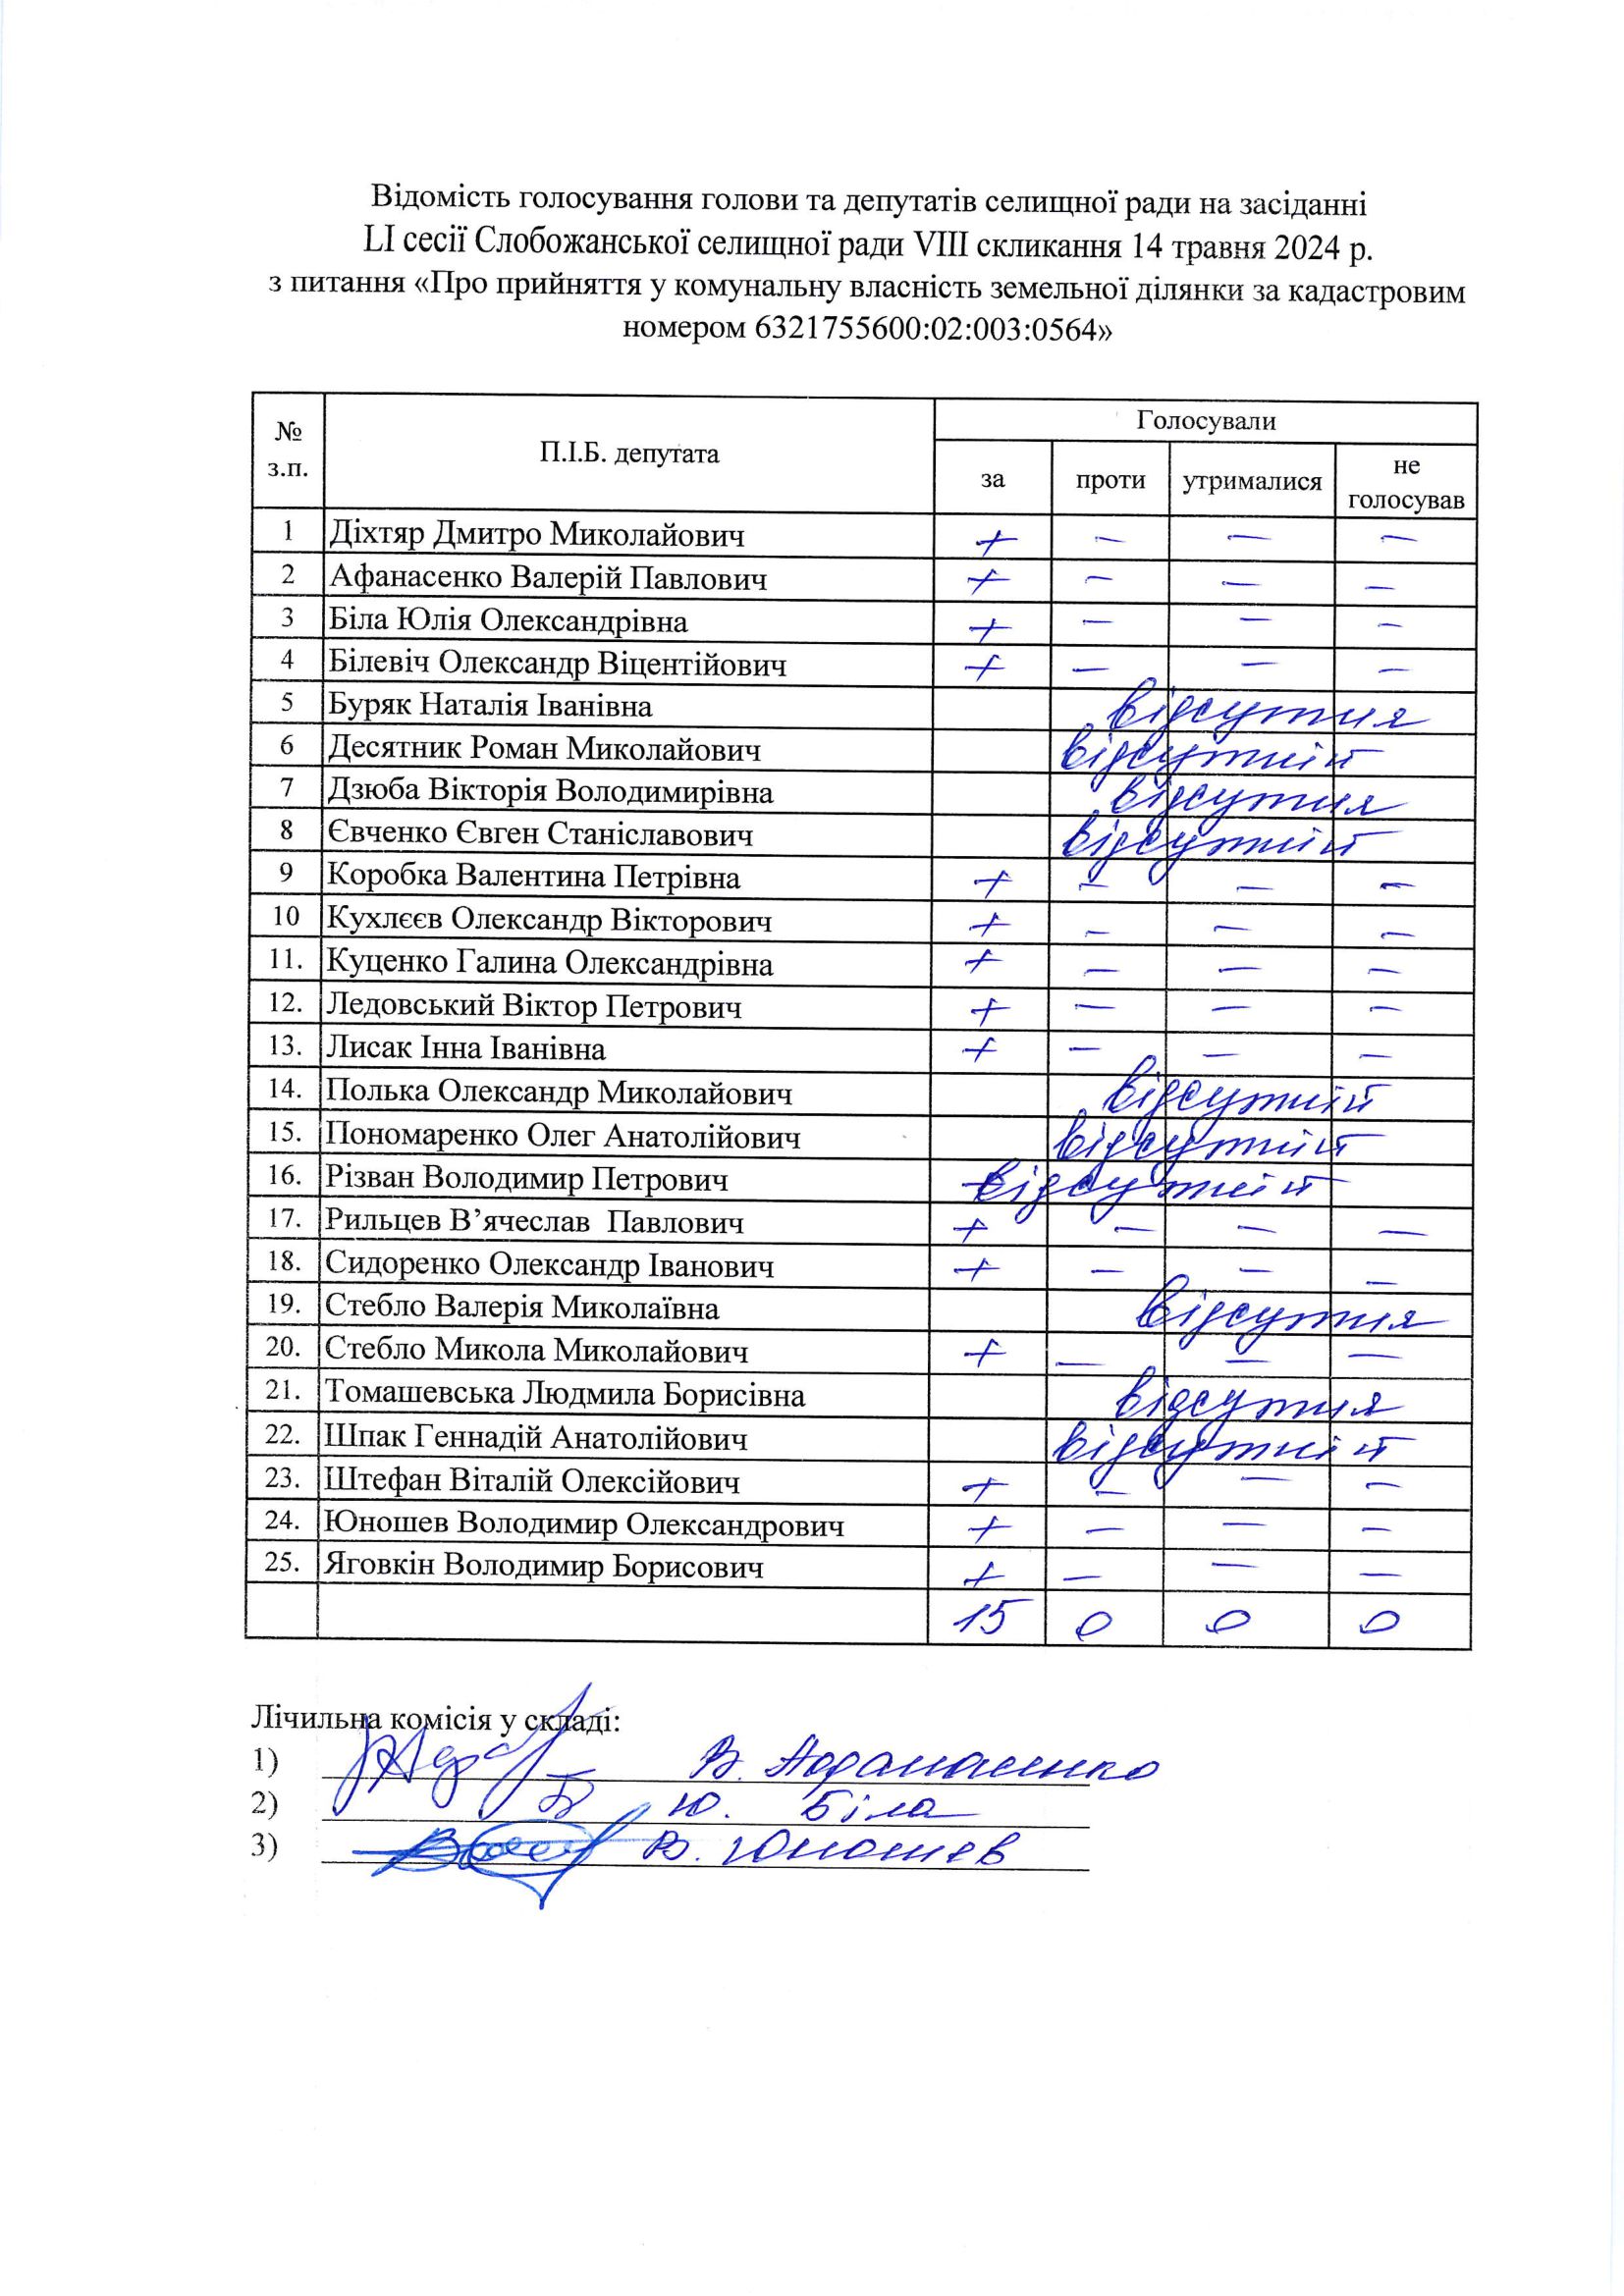 Відомість голосування голови та депутатів селищної ради на засіданні
LI сесії Слобожанської селищної ради VIII скликання 14 травня 2024 р.
з питання «Про прийняття у комунальну власність земельної ділянки за кадастровим
номером 6321755600:02:003:0564»
№ з.п. П.І.Б. депутата Голосували
за проти утрималися не голосував
1 Діхтяр Дмитро Миколайович + – – –
2 Афанасенко Валерій Павлович + – – –
3 Біла Юлія Олександрівна + – – –
4 Білевіч Олександр Віцентійович + – – –
5 Буряк Наталія Іванівна відсутня
6 Десятник Роман Миколайович відсутній
7 Дзюба Вікторія Володимирівна відсутня
8 Євченко Євген Станіславович відсутній
9 Коробка Валентина Петрівна + – – –
10 Кухлєєв Олександр Вікторович + – – –
11. Куценко Галина Олександрівна + – – –
12. Ледовський Віктор Петрович + – – –
13. Лисак Інна Іванівна + – – –
14. Полька Олександр Миколайович відсутній
15. Пономаренко Олег Анатолійович відсутній
16. Різван Володимир Петрович відсутній
17. Рильцев В’ячеслав Павлович + – – –
18. Сидоренко Олександр Іванович + – – –
19. Стебло Валерія Миколаївна відсутня
20. Стебло Микола Миколайович + – – –
21. Томашевська Людмила Борисівна відсутня
22. Шпак Геннадій Анатолійович відсутній
23. Штефан Віталій Олексійович + – – –
24. Юношев Володимир Олександрович + – – –
25. Яговкін Володимир Борисович + – – –
15 0 0 0
Лічильна комісія у складі:
1) В. Афанасенко
2) Ю. Біла
3) В. Юношев